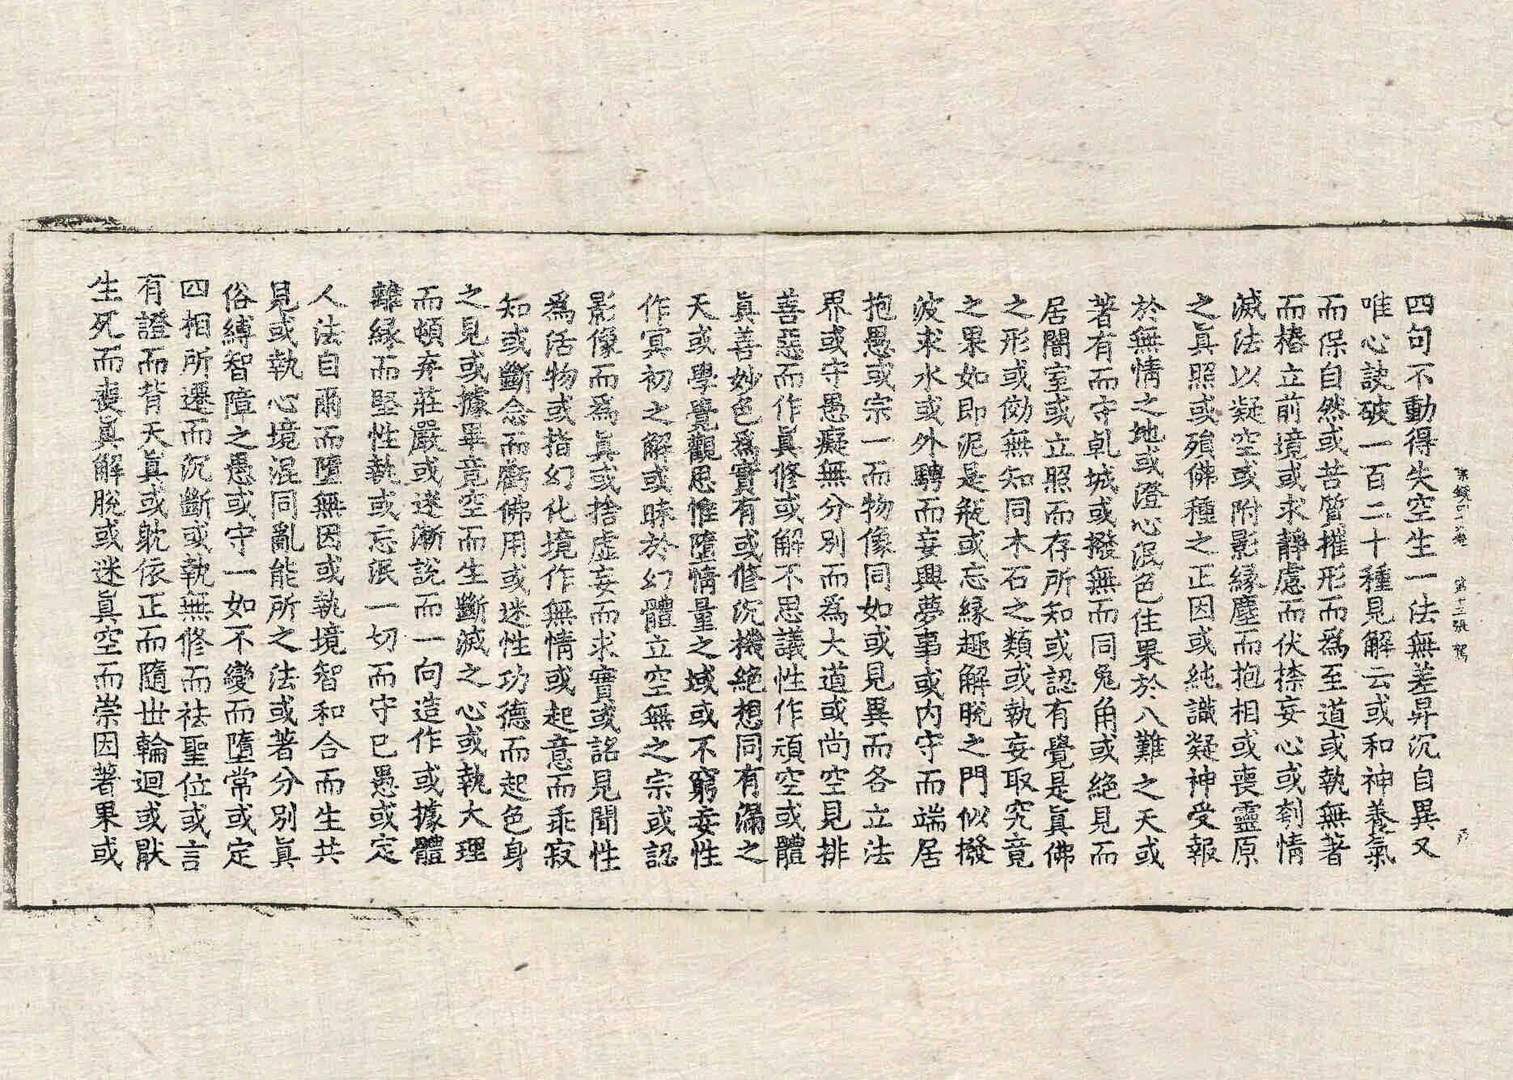 宗鏡四十六卷 第十三張 駕
四句不動得失空生一法無差昇沉自異又
唯心訣破一百二十種見解云或和神養氣
而保自然或苦質摧形而為至道或執無著
而樁立前境或求靜慮而伏捺妄心或刳情
滅法以凝空或附影緣塵而抱相或喪靈原
之真照或殞佛種之正因或純識凝神受報
於無情之地或澄心泯色住果於八難之天或
著有而守乹城或撥無而同兔角或絕見而
居闇室或立照而存所知或認有覺是真佛
之形或効無知同木石之類或執妄取究竟
之果如即泥是瓶或忘緣趣解脫之門似撥
波求水或外騁而妄興夢事或內守而端居
抱愚或宗一而物像同如或見異而各立法
界或守愚癡無分別而為大道或尚空見排
善惡而作真修或解不思議性作頑空或體
真善妙色為實有或修沉機絕想同有漏之
天或學覺觀思惟墮情量之域或不窮妄性
作冥初之解或昧於幻體立空無之宗或認
影像而為真或捨虛妄而求實或認見聞性
為活物或指幻化境作無情或起意而乖寂
知或斷念而虧佛用或迷性功德而起色身
之見或據畢竟空而生斷滅之心或執大理
而頓弃莊嚴或迷漸說而一向造作或據體
離緣而堅性執或忘泯一切而守己愚或定
人法自爾而墮無因或執境智和合而生共
見或執心境混同亂能所之法或著分別真
俗縛智障之愚或守一如不變而墮常或定
四相所遷而沉斷或執無修而袪聖位或言
有證而背天真或躭依正而隨世輪迴或猒
生死而喪真解脫或迷真空而崇因著果或